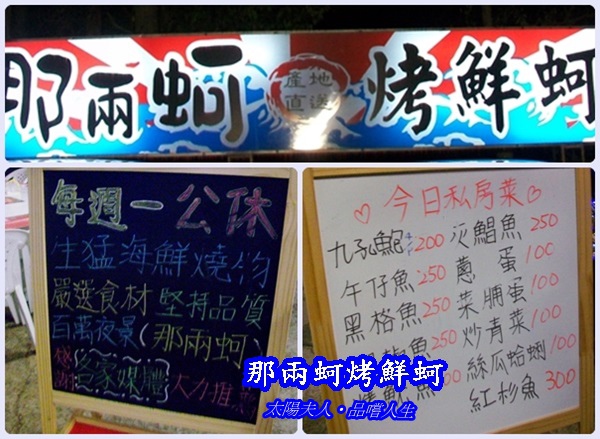 那兩蚵 產地直送 烤鮮蚵
每週一公休
生猛海鮮燒物
嚴選食材 堅持品質
百萬夜景(那兩蚵)
媒體 大力推
♡今日私房菜♡
九孔鮑 200
午仔魚 250
黑格魚 250
魚 250
鯧魚 250
蔥 蛋 100
菜脯蛋 100
炒青菜 100
絲瓜蛤蜊 100
紅杉魚 300
那兩蚵烤鮮蚵
太陽夫人·品嚐人生